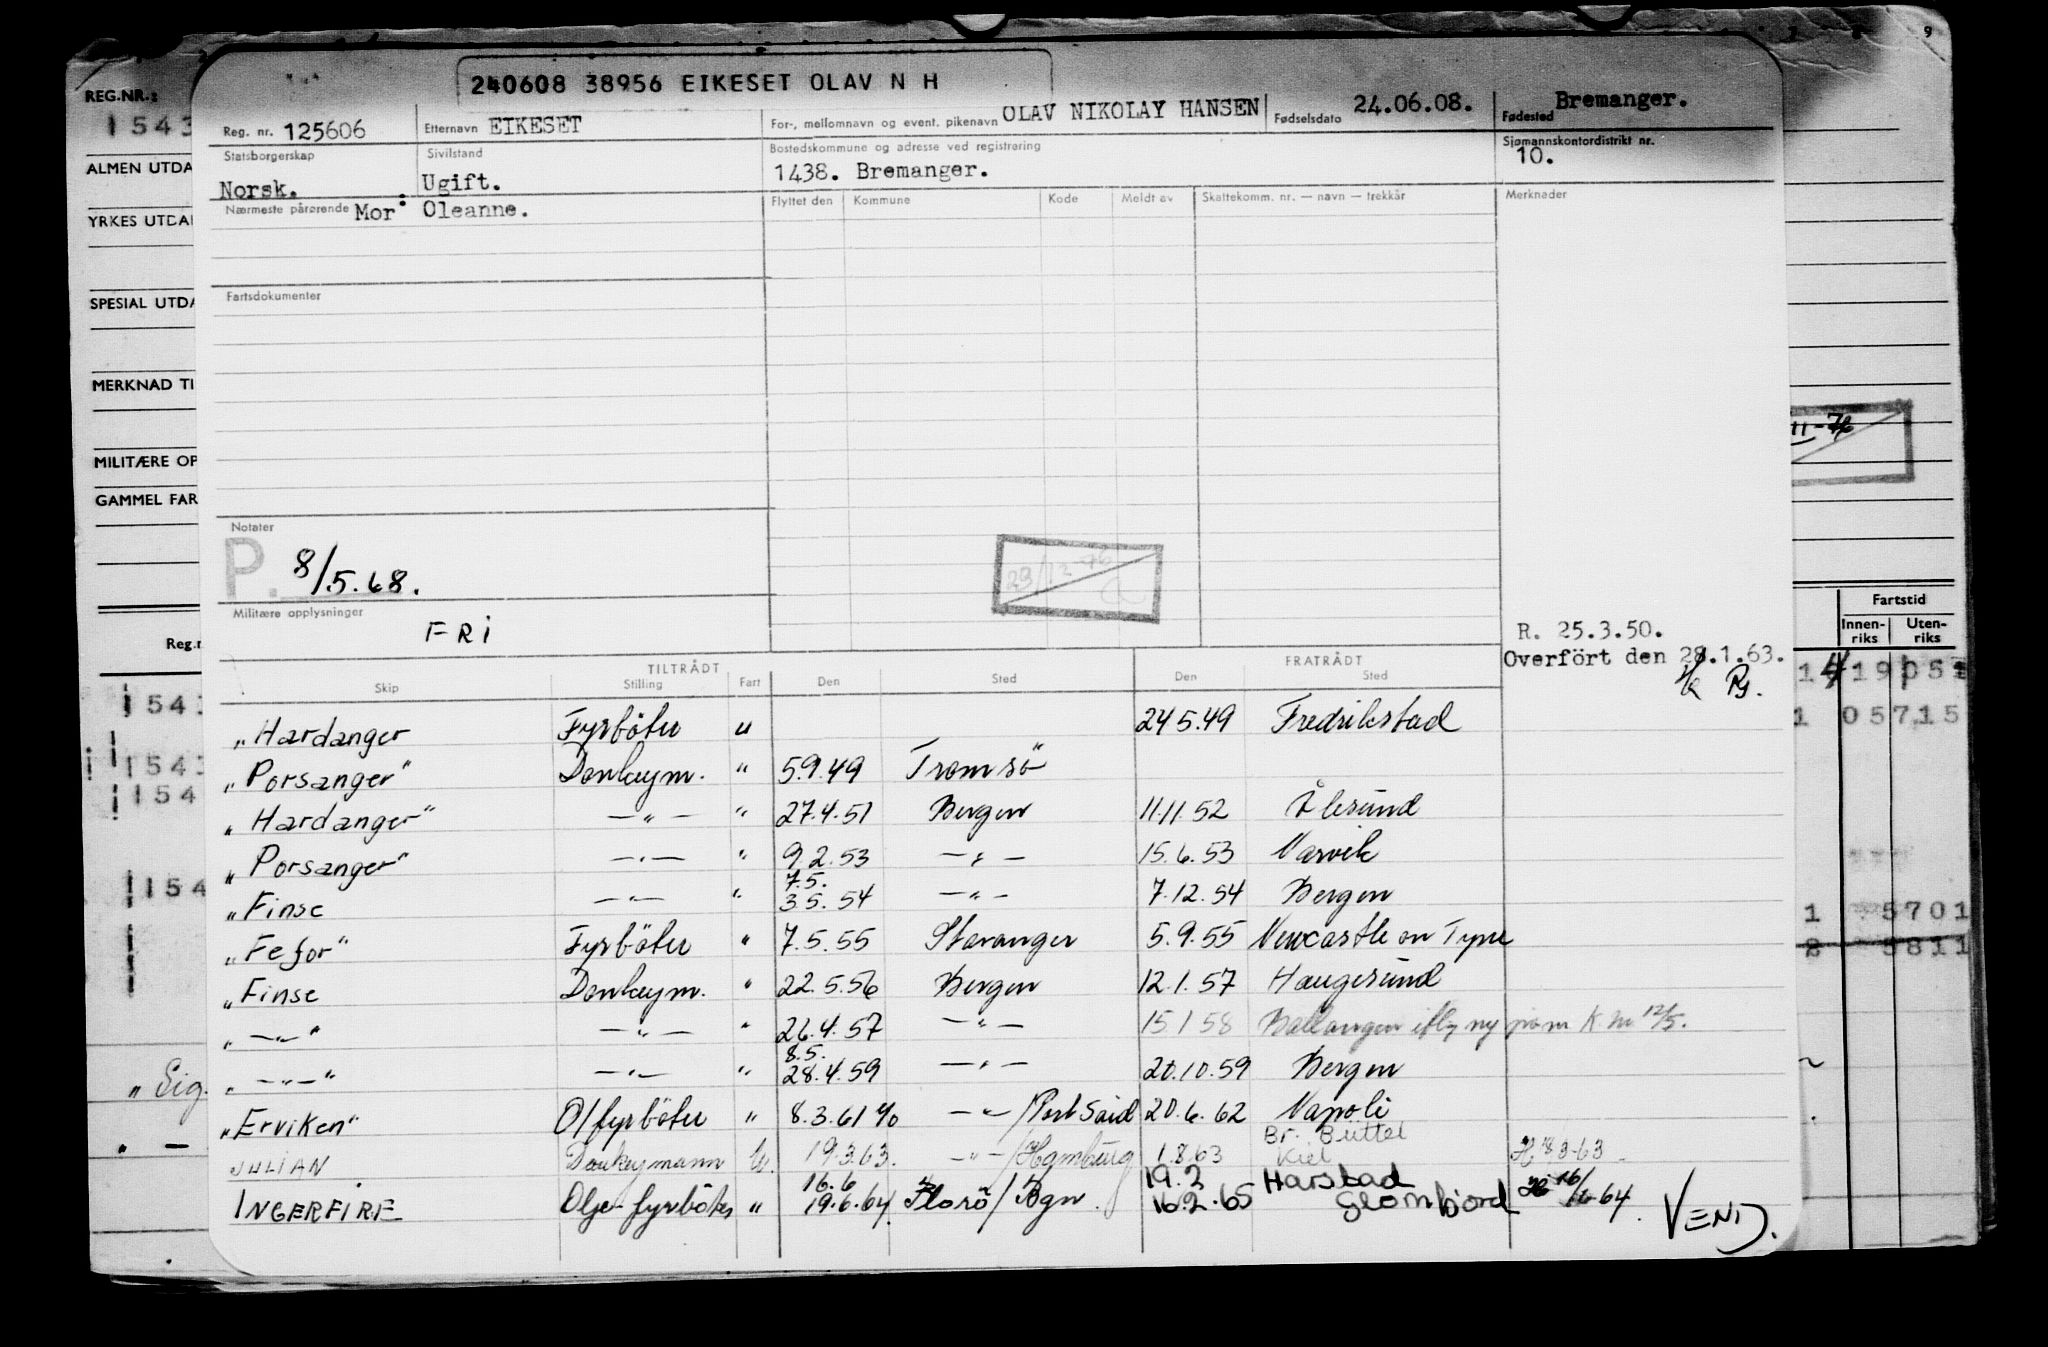 9
REG.NR.:
1543
240608 38956 EIKESET OLAV N H
Reg. nr. 125606 Etternavn EIKESET For-, mellomnavn og event. pikenavn OLAV NIKOLAY HANSEN Fødselsdato 24.06.08. Fødested Bremanger.
ALMEN UTDA
Statsborgerskap Norsk. Sivilstand Ugift. Bostedskommune og adresse ved registrering 1438. Bremanger. Sjømannskontordistrikt nr. 10.
YRKES UTDA
Nærmeste pårørende Mor: Oleanne. Flyttet den Kommune Kode Meldt av Skattekomm. nr. — navn — trekkår Merknader
SPESIAL UTDA
Fartsdokumenter
MERKNAD TI
11-76
MILITÆRE OP
GAMMEL FAR
Notater
P. 8/5.68.
29/12-76
Militære opplysninger
FRI
R. 25.3.50.
Overført den 28.1.63.
Fartstid
Innen-riks Uten-riks
Reg.n
TILTRÅDT FRATRÅDT
Skip Stilling Fart Den Sted Den Sted
1543
19051
„Hardanger Fyrböter u 24 5.49 Fredrikstad
1 05715
„Porsanger" Donkeym. " 5.9.49 Tromsö
1543
„Hardanger" —"— " 27.4.51 Bergen 11.11.52 Ålesund
154
„Porsanger" —"— " 9.2.53 —"— 15.6.53 Narvik
154
„Finse —"— " 7.5. 3.5.54 —"— 7.12.54 Bergen
1 5701
„Fefor" Fyrböter " 7.5.55 Stavanger 5.9.55 Newcastle on Tyne
2 5811
„Finse Donkeym. " 22.5.56 Bergen 12.1.57 Haugesund
„—"—" —"— " 26.4.57 —"— 15 1 58 Ballangen 12/5.
„Sig.
„—"—" —"— " 8.5. 28.4.59 —"— 20.10.59 Bergen
„Erviken" O/fyrböter " 8.3.61 % —"—/Port Said 20.6.62 Napoli
" —
JULIAN Donkeymann U. 19.3.63. —"—/Hamburg 1.8.63 Br. Büttel Kiel 3-63
INGERFIRE Olje-fyrböter " 16.6 19.6.64 Florö/Bgn. 19.2 16.2.65 Harstad Glomfjord 16/6 64
VEND.